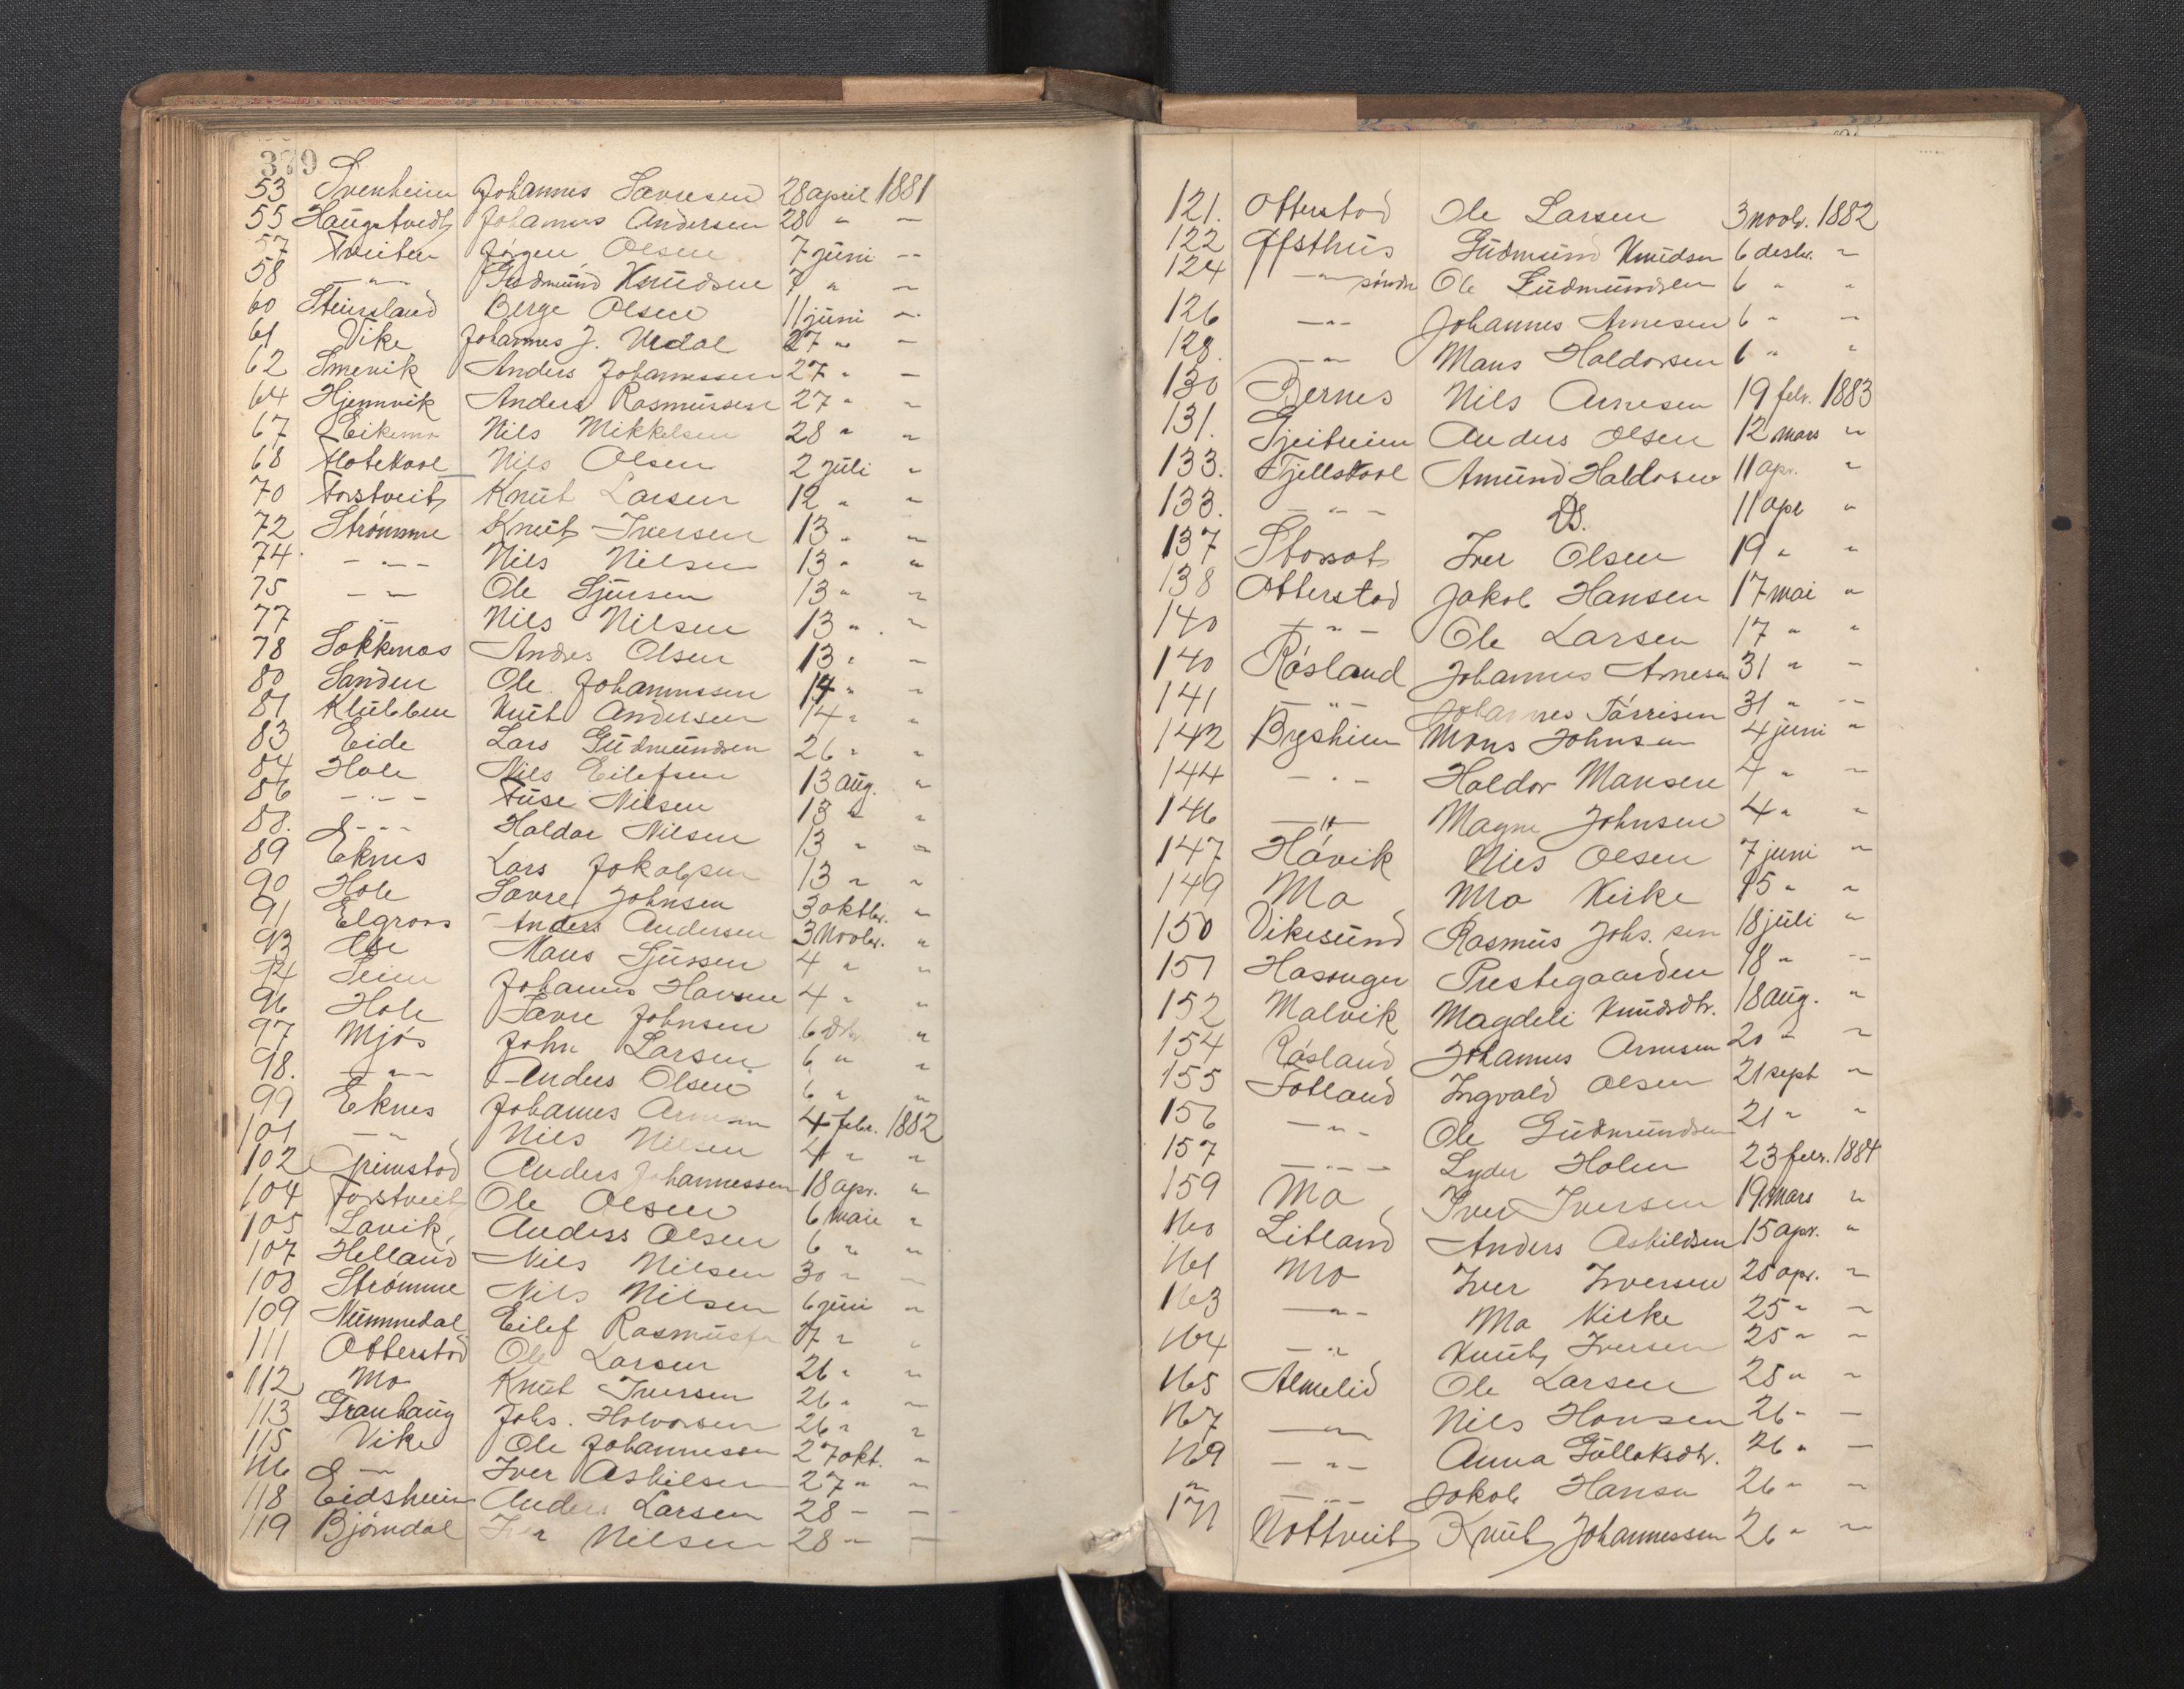 379
53 Svenheim Johannes Savresen 28 april 1881
55 Haugstvedt Johannes Andersen 28 " —
57 Tveiten Jørgen Olsen 7 juni —
58 — " — Gudmund Knudsen 7 " —
60 Steinsland Berge Olsen 11 juni —
61 Vike Johannes J. Urdal 27 " —
62 Smevik Anders Johannessen 27 " —
64 Hjemvik Anders Rasmussen 27 " "
67 Eikemo Nils Mikkelsen 28 " "
68 Flotekval Nils Olsen 2 juli "
70 Forstveit Knut Larsen 12 " "
72 Strømme Knut Iversen 13 " "
74 — " — Nils Nilsen 13 " "
75 — " — Ole Sjursen 13 " "
77 — Nils Nilsen 13 " "
78 Sokknos Andrs Olsen 13 " —
80 Sanden Ole Johannessen 14 " "
81 Klubben Knut Andersen 14 " "
83 Eide Lars Gudmundsen 26 " "
84 Hole Nils Eilefsen 13 aug. "
86 — " — Tuse Nilsen 13 " "
88. — " — Haldor Nilsen 13 " "
89 Eknes Lars Jakobsen 13 " "
90 Hole Savre Johnsen 3 oktbr. "
91 Elgroos Anders Andersen 3 Novbr. "
93 Mans Sjursen 4 " "
94 Seim Johannes 4 " "
96 Hole Savre Johnsen 6 "
97 Mjøs John Larsen 6 " "
98. — " — Anders Olsen 6 " "
99 Eknes Johannes 4 febr. 1882
101 — " — Nils Nilsen 4 " "
102 Grimstad Anders Johannessen 18 apr. "
104 Forstveit Ole Olsen 6 mai "
105 Lavik Anders Olsen 6 " "
107 Helland Nils Nilsen 30 " —
108 Strømme Nils Nilsen 6 juni "
109 Nummedal Eilef Rasmussen 7 " "
111 Otterstad Ole Larsen 26 " "
112 Mo Knut Iversen 26 " "
113 Granhaug Johs. Halvorsen 26 " "
115 Vike Ole Johannessen 27 okt. "
116 — " — Iver Askilsen 27 " "
118 Eidsheim Anders Larsen 28 — —
119 Bjørndal Iver Nilsen 28 " —
121. Otterstad Ole Larsen 3 novb. 1882
122 Øfsthus Gudmund Knudsen 6 desbr. "
124 — " — Ole Gudmundsen 6 " "
126 — " — Johannes Arnesen 6 " —
128. — " — Mans Haldorsen 6 " "
130 Bernes Nils Arnesen 19 febr. 1883
131. Gjeitheim Anders Olsen 12 mars "
133. Fjellskvol Amund Haldorsen 11 apr. "
133. — " — Ds. 11 apr "
137 Storsot Iver Olsen 19 " "
138 Otterstad Jakob Hansen 17 mai "
140 — " — Ole Larsen 17 " "
140 Røsland Johannes Arnesen 31 " —
141 — " — Johannes 31 " —
142 Brysheim Mons Johnsen 4 juni "
144 — " — Haldor Mansen 4 " "
146 — " — Magne Johnsen 4 " "
147 Håvik Nils Olsen 7 juni "
149 Mo Mo Kirke 15 " "
150 Vikesund Rasmus Johs. sen 18 juli "
151 Hasunger Prestegaarden 18 " —
152 Molvik Magdeli Knudsdtr. 18 aug. "
154 Røsland Johannes Arnesen 20 " "
155 Totland Ingvald Olsen 21 sept "
156 — " — Ole Gudmundsen 21 " "
157 — " — Lyder Holm 23 febr. 1884
159 Mo Iver Iversen 19 mars "
160 Litland Anders Askildsen 15 apr. "
161 Mo Iver Iversen 25 apr. "
163 — " — Mo Kirke 25 " —
164 — " — Knut Iversen 25 " —
165 Almelid Ole Larsen 25 " "
167 — " — Nils Hansen 26 " —
169 — " — Anna Gullaksdtr. 26 " —
" — " — Jakob Hansen 26 " —
171 Nottveit Knut Johannessen 26 " "